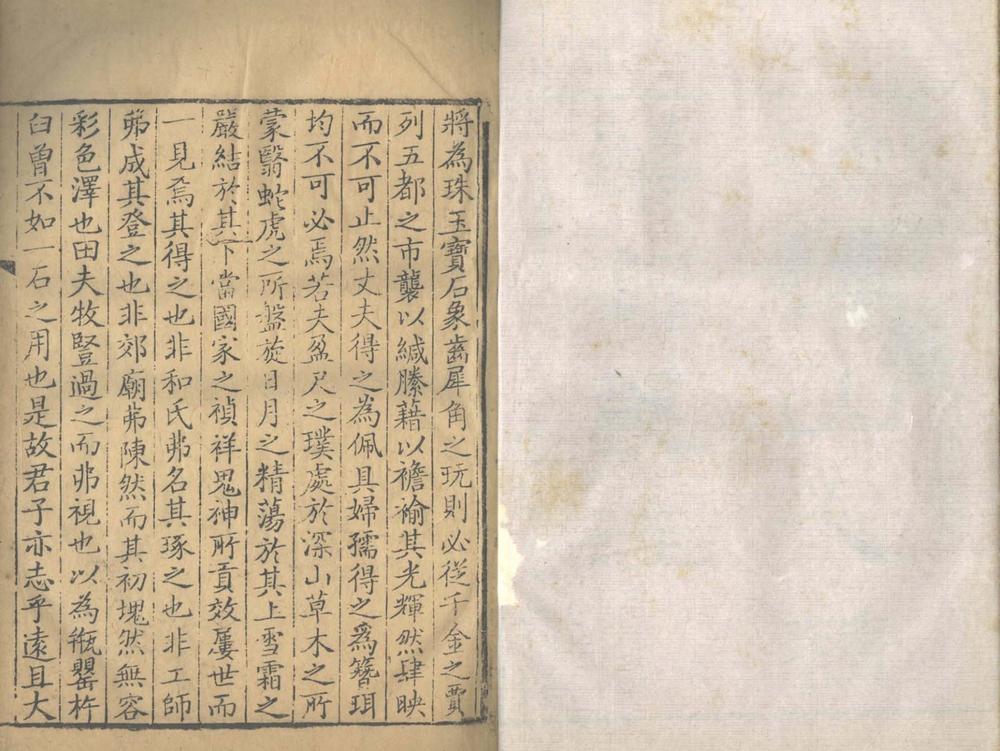 將為珠玉寶石象齒犀角之玩則必從千金之賈
列五都之市襲以緘縢藉以襜褕其光輝然肆映
而不可止然丈夫得之為佩具婦孺得之為簪珥
均不可必焉若夫盈尺之璞處於深山草木之所
蒙翳蛇虎之所盤旋日月之精蕩於其上雪霜之
嚴結於其下當國家之禎祥鬼神所貢效屢世而
一見焉其得之也非和氏弗名其琢之也非工師
弗成其登之也非郊廟弗陳然而其初塊然無容
彩色澤也田夫牧豎過之而弗視也以為瓶罌杵
臼曾不如一石之用也是故君子亦志乎遠且大